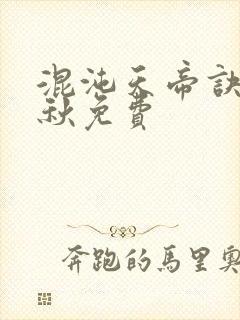 混沌天帝訣
秋免費
奔跑的馬里奧